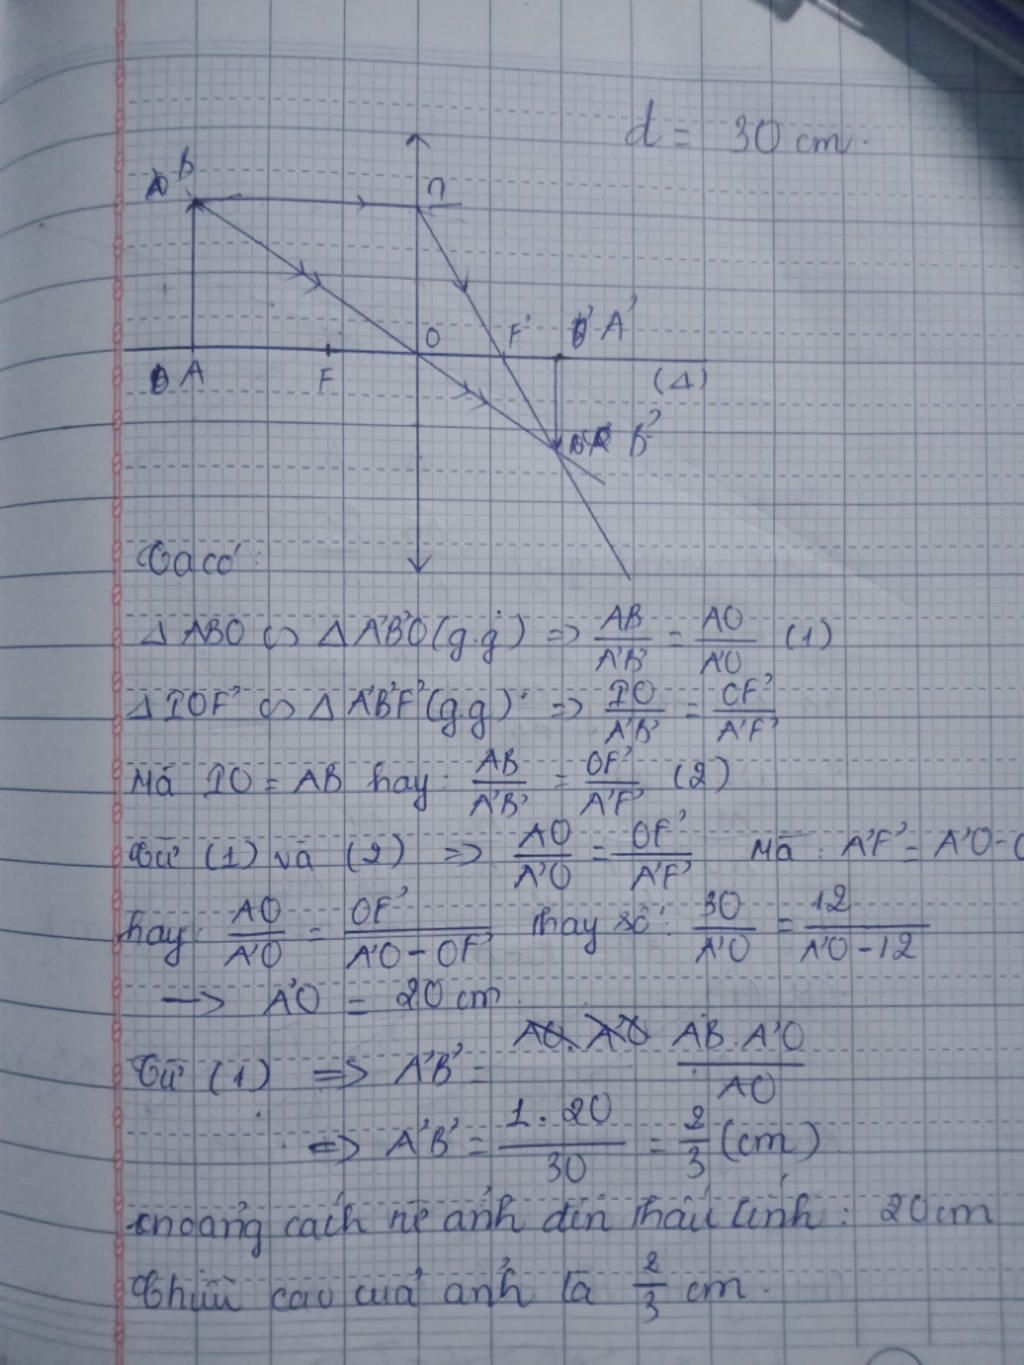 d = 30 cm.
B
I
O F' A'
A F (Δ)
B'
Ta có:
Δ ABO ∽ Δ A'B'O (g.g) => AB/A'B' = AO/A'O (1)
Δ IOF' ∽ Δ A'B'F' (g.g) => IO/A'B' = OF'/A'F'
Mà IO = AB hay: AB/A'B' = OF'/A'F' (2)
Từ (1) và (2) => AO/A'O = OF'/A'F' Mà: A'F' = A'O -
hay: AO/A'O = OF'/A'O - OF' Thay số: 30/A'O = 12/A'O - 12
-> A'O = 20 cm
Từ (1) => A'B' = AB . A'O/AO
<=> A'B' = 1 . 20/30 = 2/3 (cm)
khoảng cách từ ảnh đến thấu kính: 20cm
Chiều cao của ảnh là 2/3 cm.